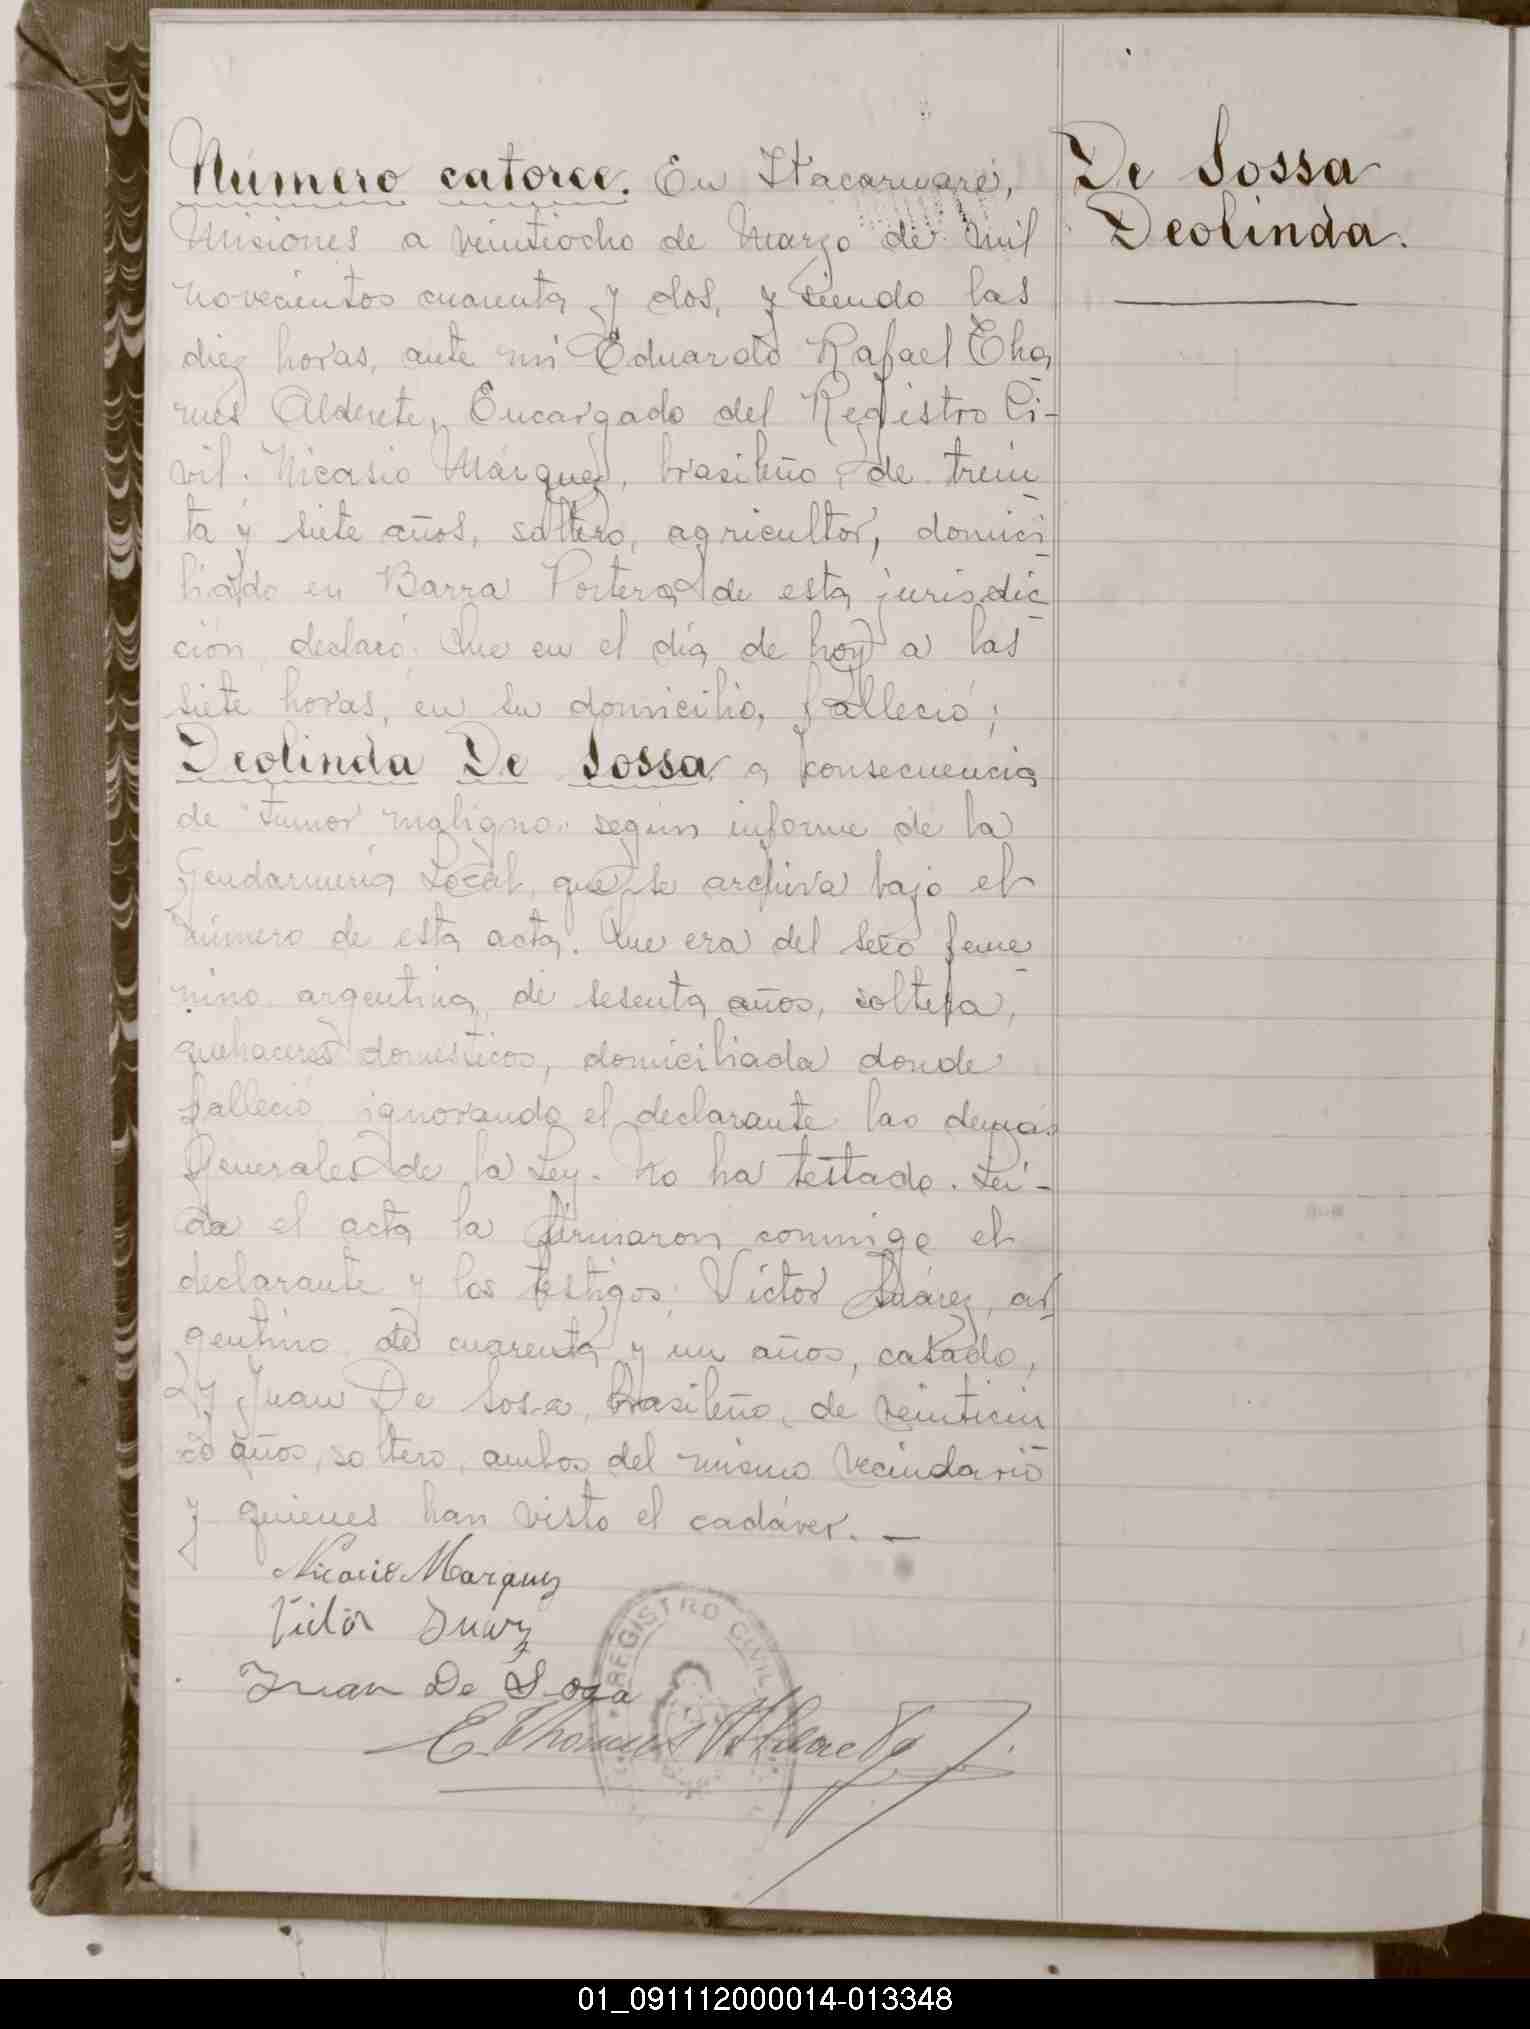 Número catorce. En Itacaruaré,
Misiones a veintiocho de Marzo de mil
novecientos cuarenta y dos, y siendo las
diez horas, ante mi Eduardo Rafael Tho
mes Alderete, Encargado del Registro Ci-
vil. Nicasio Márquez, brasileño, de trein
ta y siete años, soltero, agricultor, domici
liado en Barra Portera de esta jurisdic
ción, declaró: Que en el día de hoy a las
siete horas, en su domicilio, falleció;
Deolinda De Sossa, a consecuencia
de "tumor maligno" según informe de la
Gendarmería Local, que se archiva bajo el
número de esta acta. Que era del sexo feme
nino, argentina, de sesenta años, soltera,
quehaceres domésticos, domiciliada donde
falleció, ignorando el declarante las demás
Generales de la Ley. No ha testado. Leí-
da el acta la firmaron conmigo el
declarante y los testigos; Víctor Suárez, ar
gentino de cuarenta y un años, casado,
y Juan De Sosa, brasileño, de veinticin
co años, soltero, ambos del mismo vecindario
y quienes han visto el cadáver. —
Nicacio Marquez
Victor Suarez
Juan De Soza
E. Thomes Alderete
REGISTRO CIVIL
De Sossa
Deolinda.
01_091112000014-013348